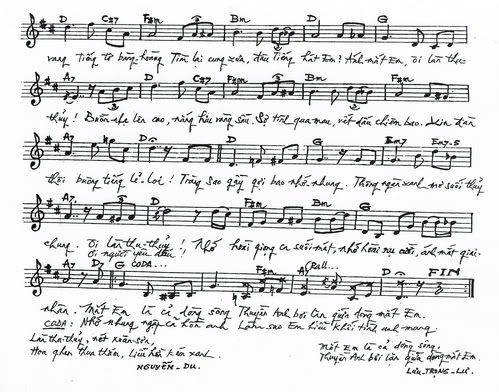 D C#7 F#m Bm D G
vang tiếng tơ bàng-hoàng Tìm lại cung xưa, đâu tiếng hát Em? Ánh mắt Em, ôi làn thu-
A7 D C#7 F#m Bm F#m
thủy! Buồn nhẹ lên cao, nắng hiu vàng sâu. Sợ tình qua mau, vết dấu chiêm bao. Xin đàn
A7 D D G Bm7 Em7-5
thôi buông tiếng lẻ-loi! Trăng sao gầy gợi bao nhớ nhung. Thông ngàn xanh mơ suối thủy
A7 D F#m Bm G
chung. Ôi làn thu-thủy! Nhớ hoài giọng ca suối mát, nhớ hoài nụ cười, ánh mắt giai-
Ôi người yêu dấu!
A7 D7 G CODA... F#m A7 Rall... D FIN
nhân. Mắt Em là cả dòng sông Thuyền Anh bơi lặn giữa dòng mắt Em.
CODA: Nhớ nhung ngập cả hồn anh Làm sao Em hiểu khối tình anh mang
Làn thu-thủy, nét xuân sơn,
Hoa ghen thua thắm, Liễu hờn kém xanh.
NGUYỄN-DU.
Mắt Em là cả dòng sông.
Thuyền Anh bơi lặn giữa dòng mắt Em.
LƯU-TRỌNG-LƯ.